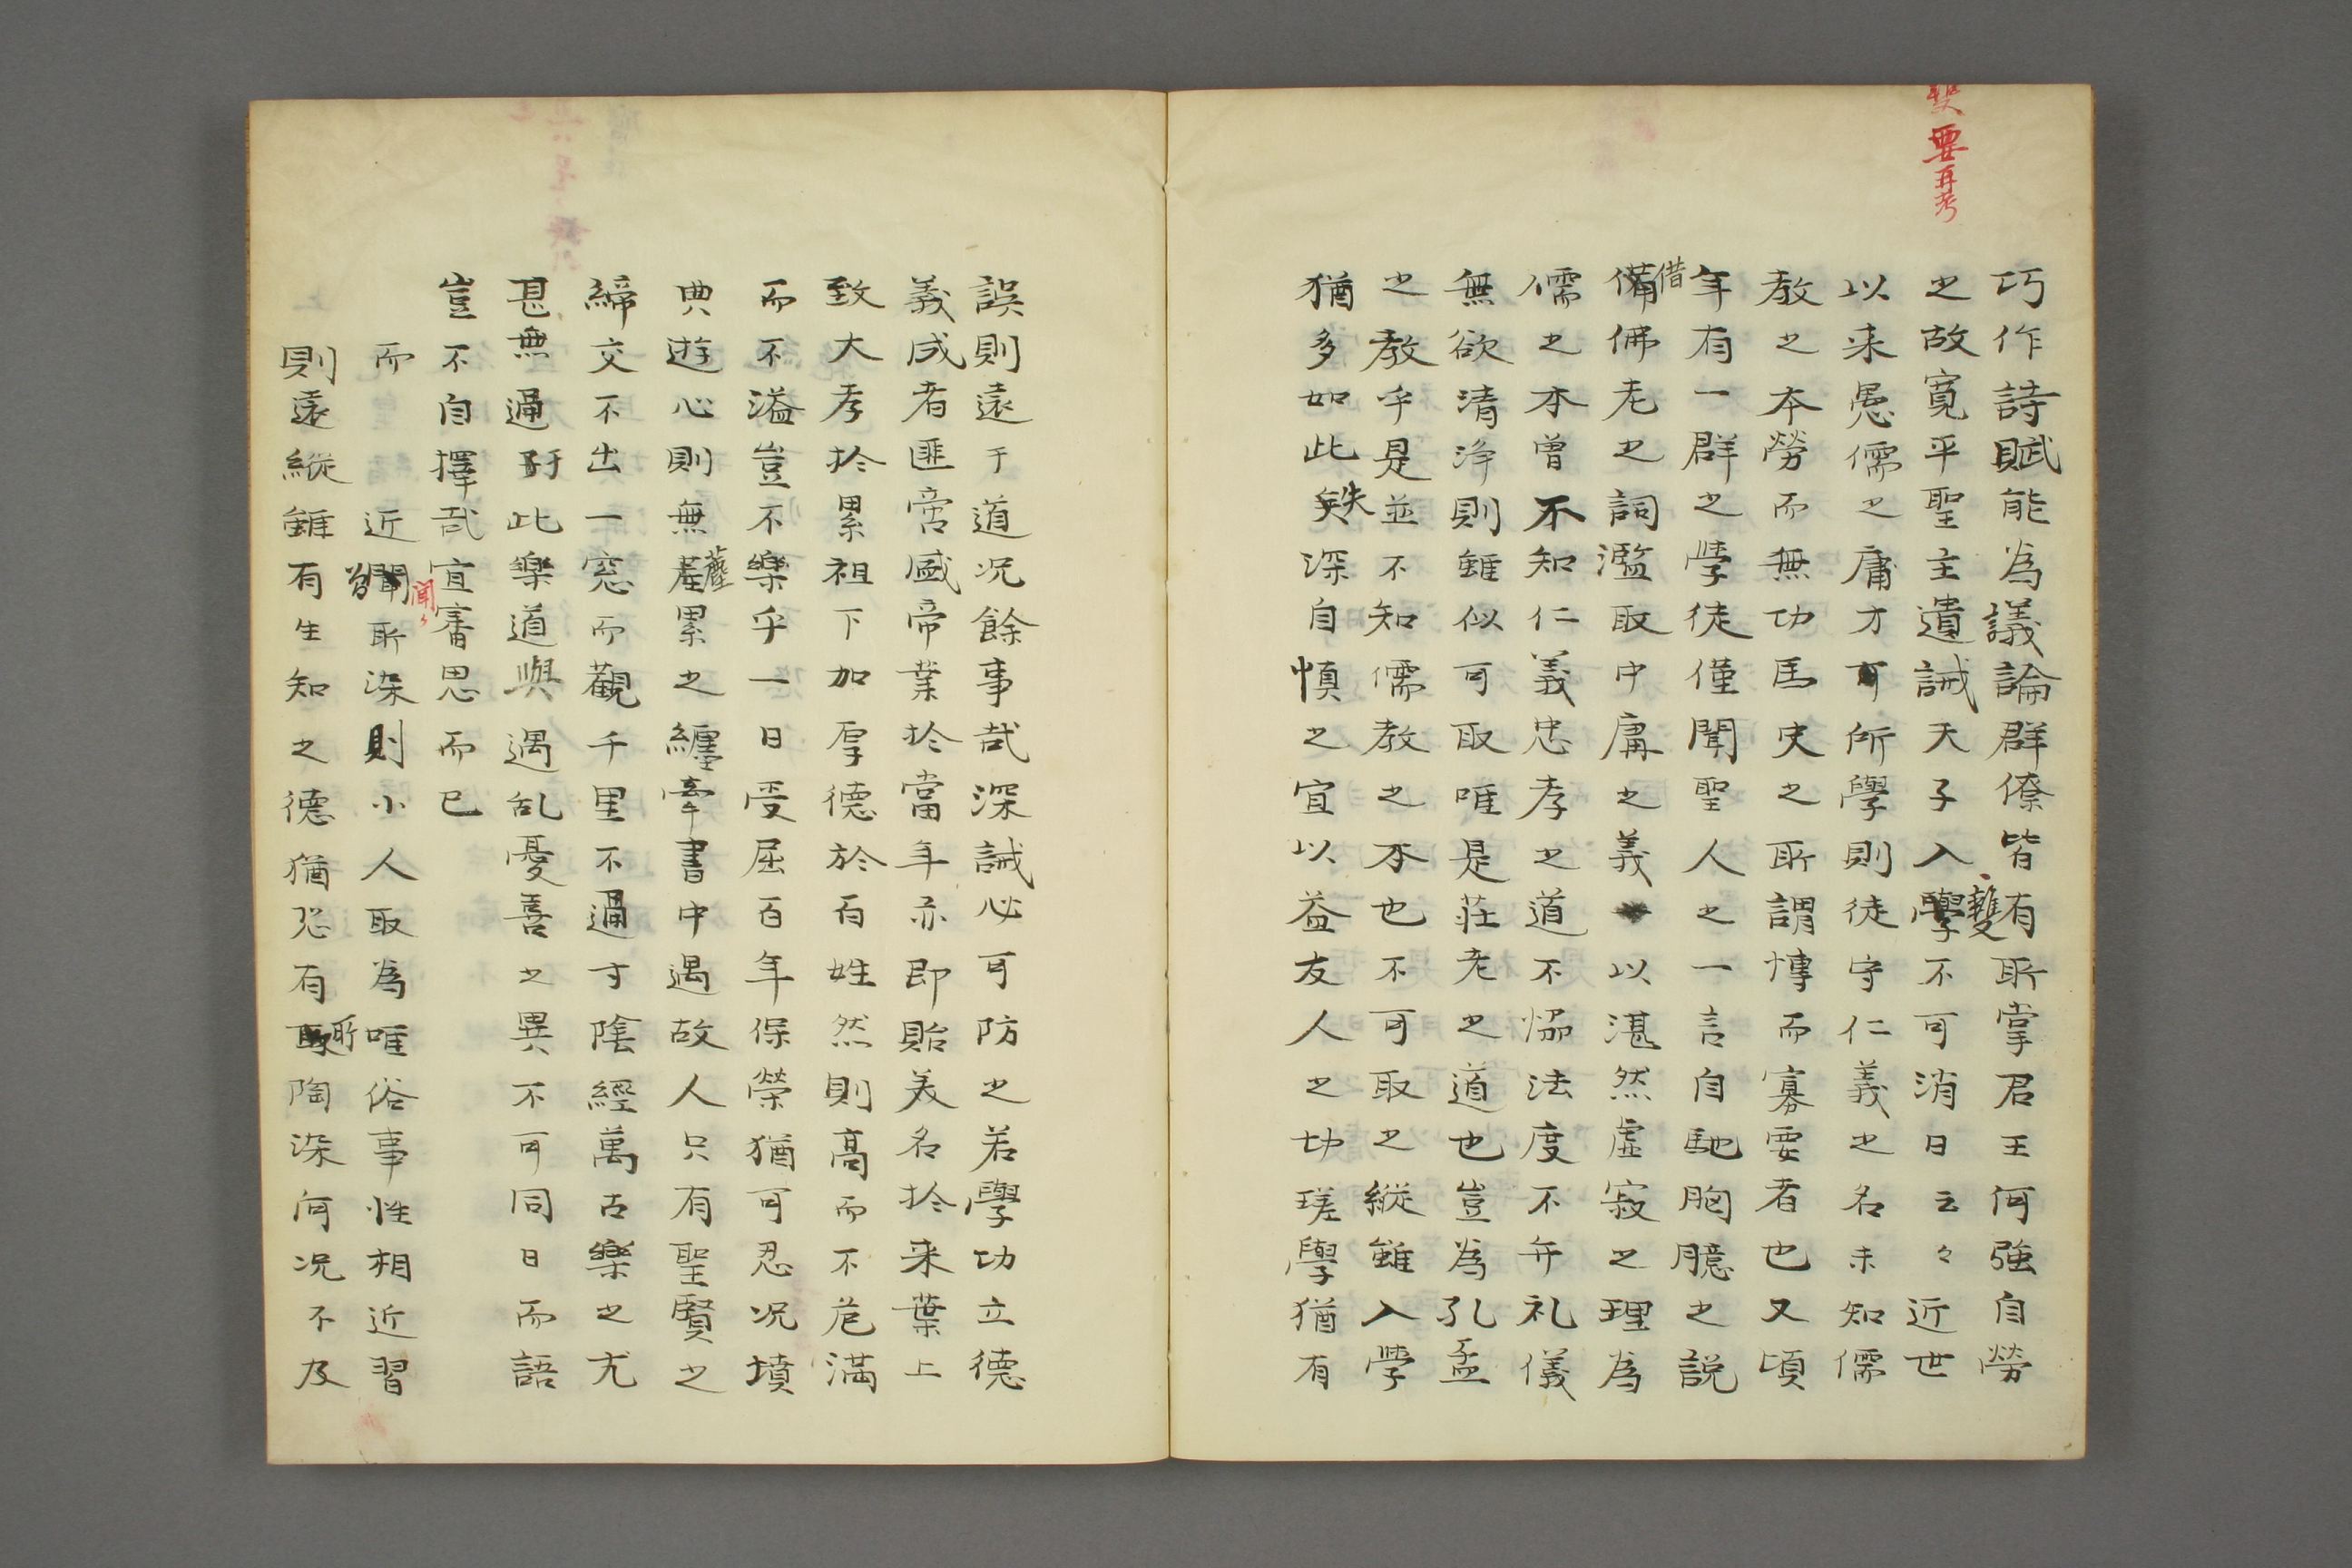 雙要再考
巧作詩賦能為議論群僚皆有所掌君王何強自勞
之故寛平聖主遺誡天子入學不可消日云々近世
雙
以来愚儒之庸才可所學則徒守仁義之名未知儒
教之本勞而無功馬史之所謂博而寡要者也又頃
年有一群之學徒僅聞聖人之一言自馳胸臆之説
借
備佛老之詞濫取中庸之義以湛然虚寂之理為
儒之本曽不知仁義忠孝之道不協法度不弁礼儀
無欲清浄則雖似可取唯是荘老之道也豈為孔孟
之教乎是並不知儒教之本也不可取之縦雖入學
猶多如此失深自慎之宜以益友人之切瑳學猶有
誤則遠于道況餘事哉深誡必可防之若學功立德
義成者匪啻盛帝業於當年亦即貽美名於来葉上
致大孝於累祖下加厚德於百姓然則高而不危満
而不溢豈不樂乎一日受屈百年保榮猶可忍況墳
典遊心則無塵累之纏牽書中遇故人只有聖賢之
締交不出一窓而觀千里不過寸陰經萬古樂之尤
甚無過于此樂道與遇乱憂喜之異不可同日而語
豈不自擇哉宜審思而已
聞
而近習所染則小人取為唯俗事性相近習
則遠縦雖有生知之德猶恐有所陶染何況不及